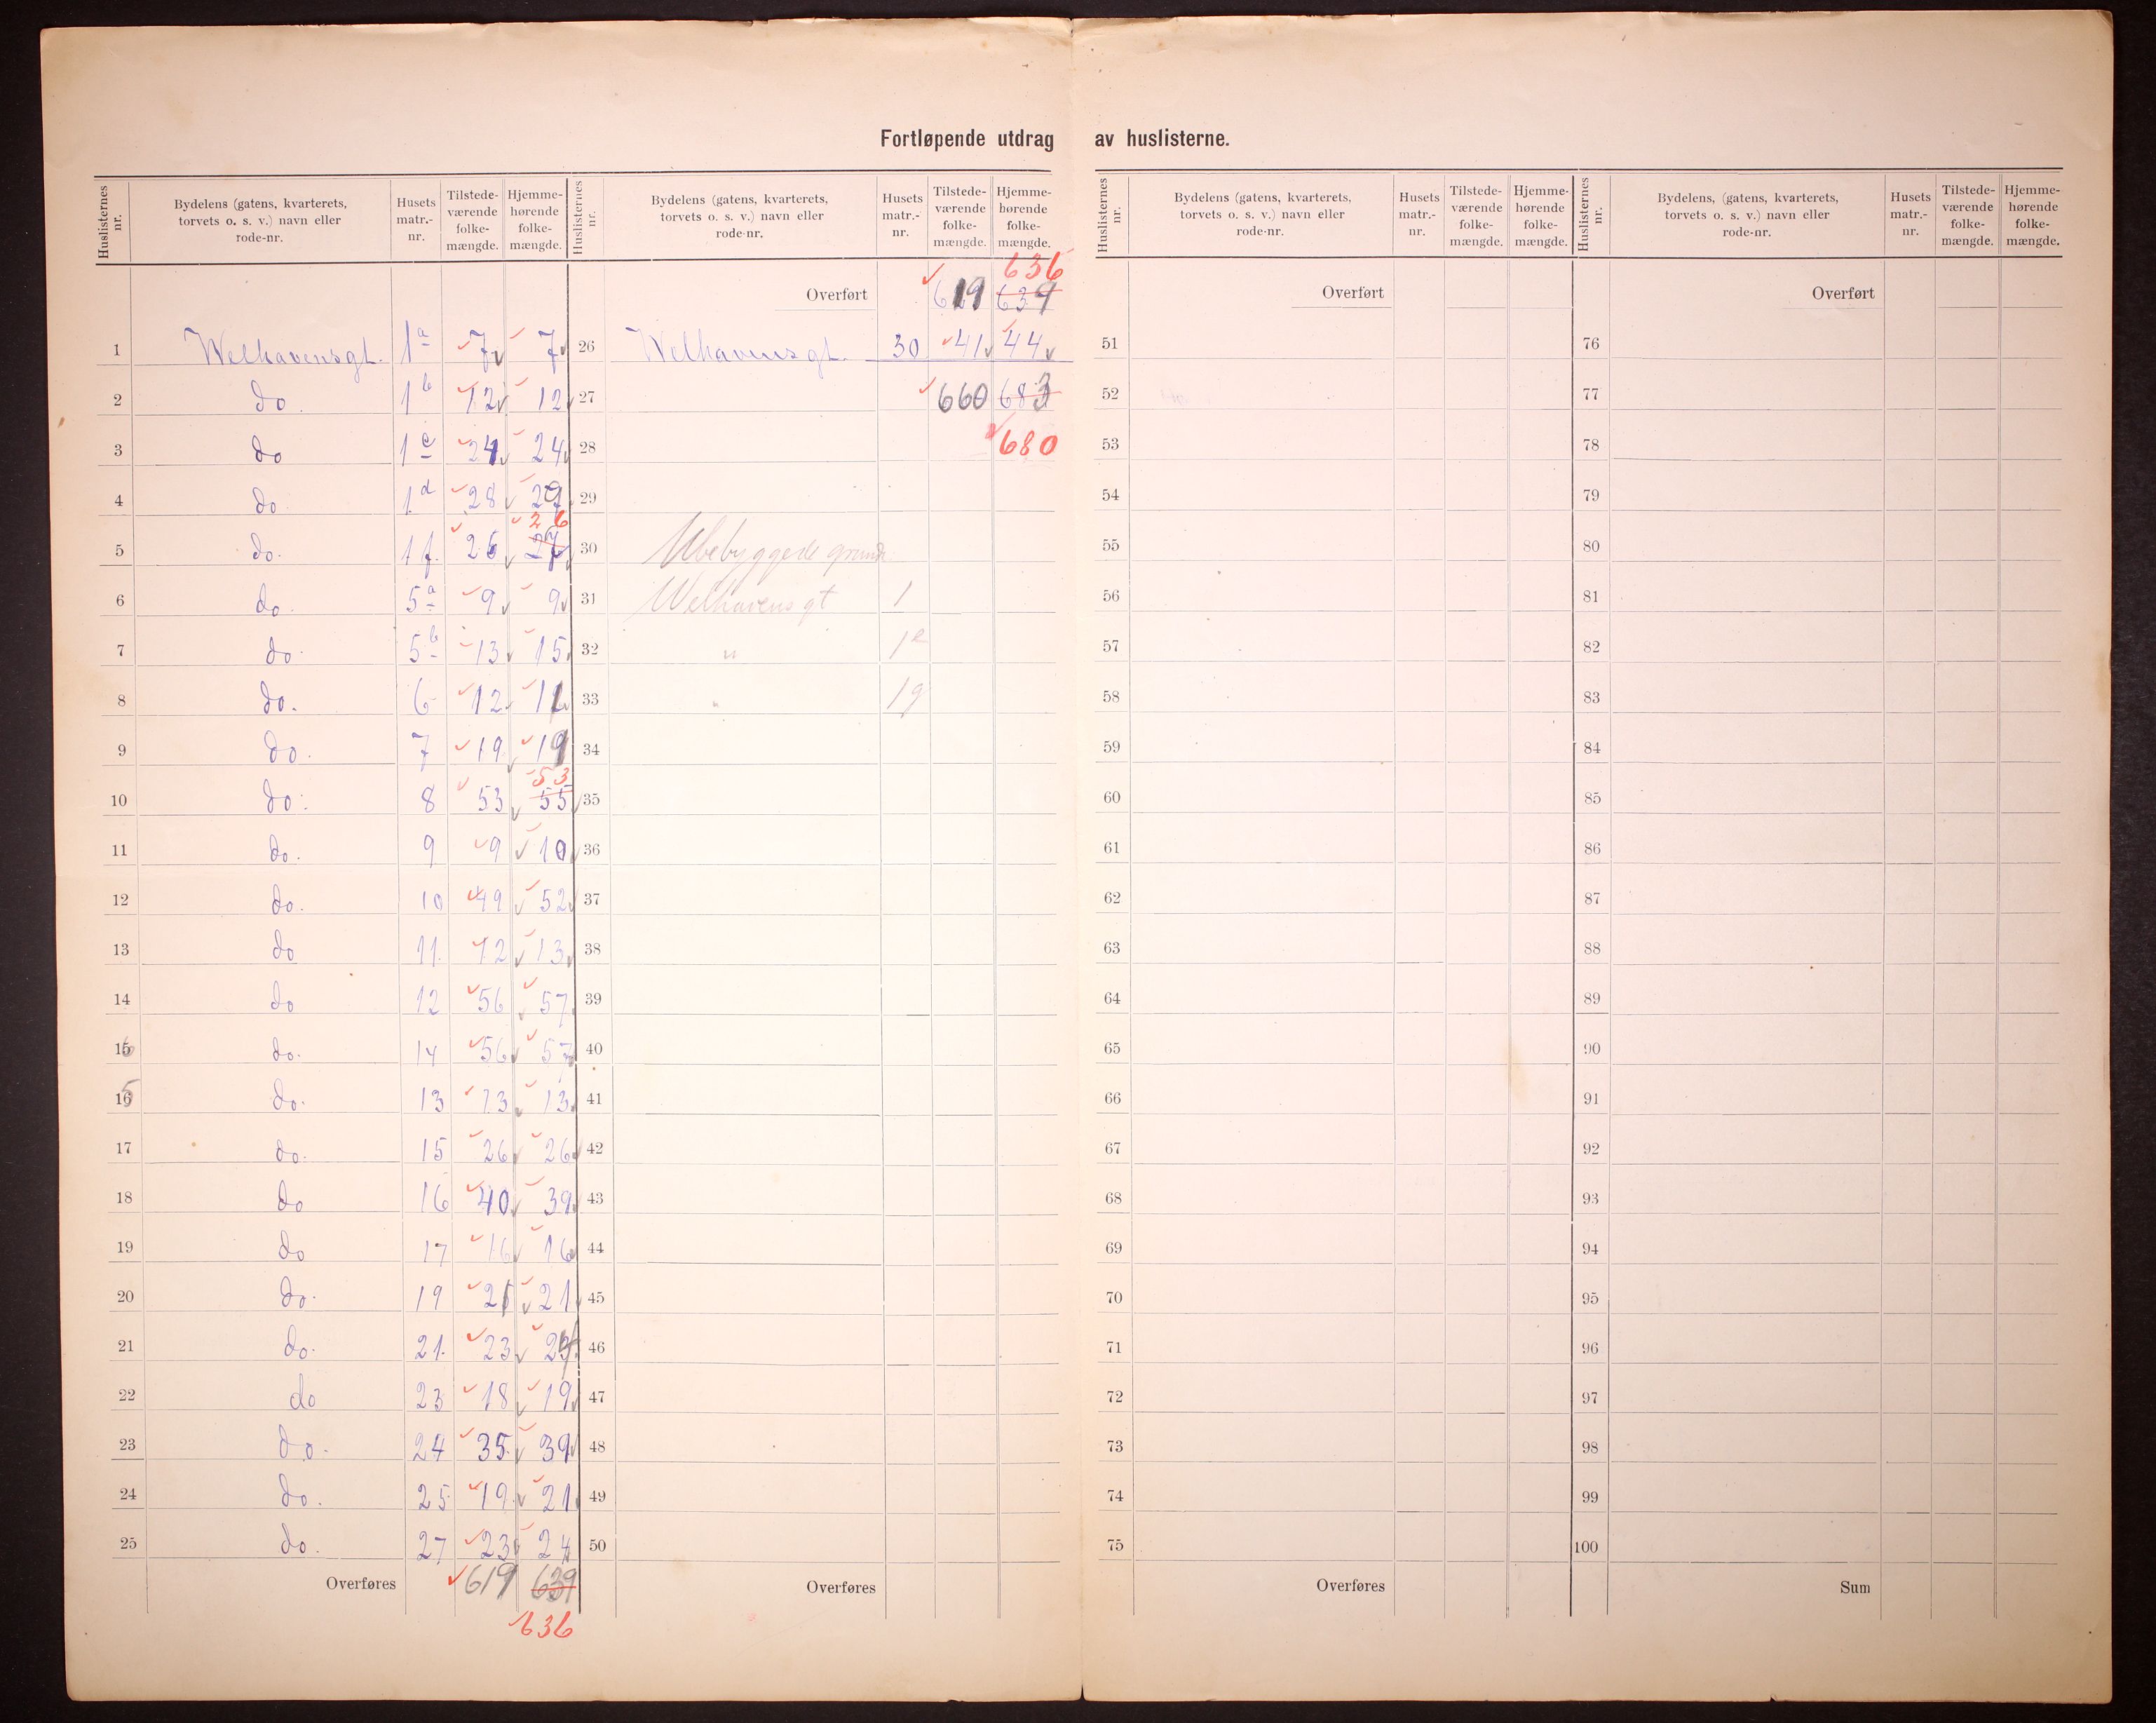 Fortløpende utdrag av huslisterne.
Huslisternes nr. Bydelens (gatens, kvarterets, torvets o. s. v.) navn eller rode-nr. Husets matr.-nr. Tilstedeværende folkemængde. Hjemmehørende folkemængde.
1 Welhavensgt. 1a 7 7
2 do. 1b 12 12
3 do 1c 24 24
4 do 1d 28 29
5 do. 1f. 26 27 26
6 do. 5a 9 9
7 do. 5b 13 15
8 do. 6 12 11
9 do. 7 19 19
10 do. 8 53 55 53
11 do. 9 9 10
12 do. 10 49 52
13 do 11. 12 13
14 do 12 56 57
15 6 do. 14 56 57
16 5 do. 13 13 13
17 do. 15 26 26
18 do 16 40 39
19 do 17 16 16
20 do. 19 21 21
21 do. 21. 23 24
22 do 23 18 19
23 do. 24 35 39
24 do. 25 19 21
25 do. 27 23 24
Overføres 619 639
636
Huslisternes nr. Bydelens (gatens, kvarterets, torvets o. s. v.) navn eller rode-nr. Husets matr.-nr. Tilstedeværende folkemængde. Hjemmehørende folkemængde.
636
Overført 619 639
26 Welhavensgt. 30 41 44
27 660 683
28 680
29
30 Ubebyggede grunde
31 Welhavens gt 1
32 " 1e
33 " 1g
34
35
36
37
38
39
40
41
42
43
44
45
46
47
48
49
50
Overføres
Huslisternes nr. Bydelens (gatens, kvarterets, torvets o. s. v.) navn eller rode-nr. Husets matr.-nr. Tilstedeværende folkemængde. Hjemmehørende folkemængde.
Overført
51
52
53
54
55
56
57
58
59
60
61
62
63
64
65
66
67
68
69
70
71
72
73
74
75
Overføres
Huslisternes nr. Bydelens, (gatens, kvarterets, torvets o. s. v.) navn eller rode-nr. Husets matr.-nr. Tilstedeværende folkemængde. Hjemmehørende folkemængde.
Overført
76
77
78
79
80
81
82
83
84
85
86
87
88
89
90
91
92
93
94
95
96
97
98
99
100
Sum